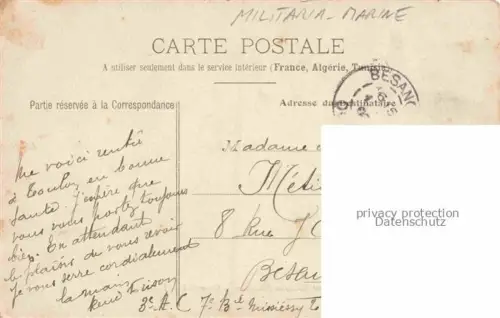 MILITARIA - MARINE
CARTE POSTALE
A utiliser seulement dans le service intérieur (France, Algérie, Tunisie)
Partie réservée à la Correspondance
Adresse du destinataire
BESANÇO
Me voici rentré
à Toulon en bonne
santé. J'espère que
vous vous portez toujours
bien. En attendant
le plaisir de vous revoir
je vous serre cordialement
la main
René
3e A.C 7e Bt Missiessy
Madame
Méti
8 Rue
Besa
privacy protection
Datenschutz